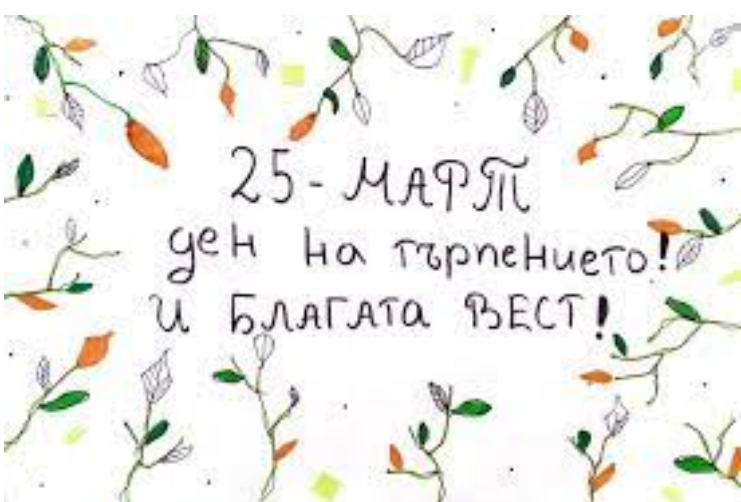 25-МАРТ
ден на търпението!
и БЛАГАТа ВЕСТ!